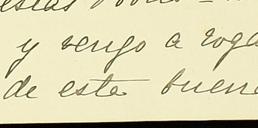 y vengo a roga
de este buen